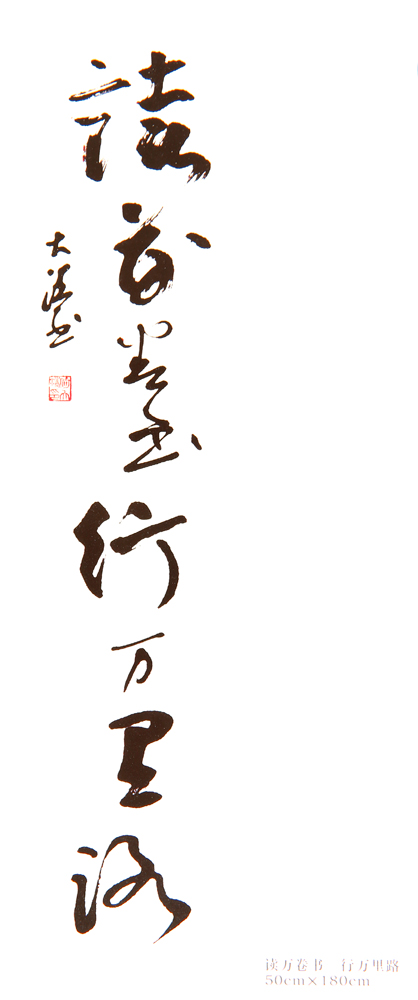 讀萬卷书行万里路
大
读万卷书　行万里路
50cm×180cm